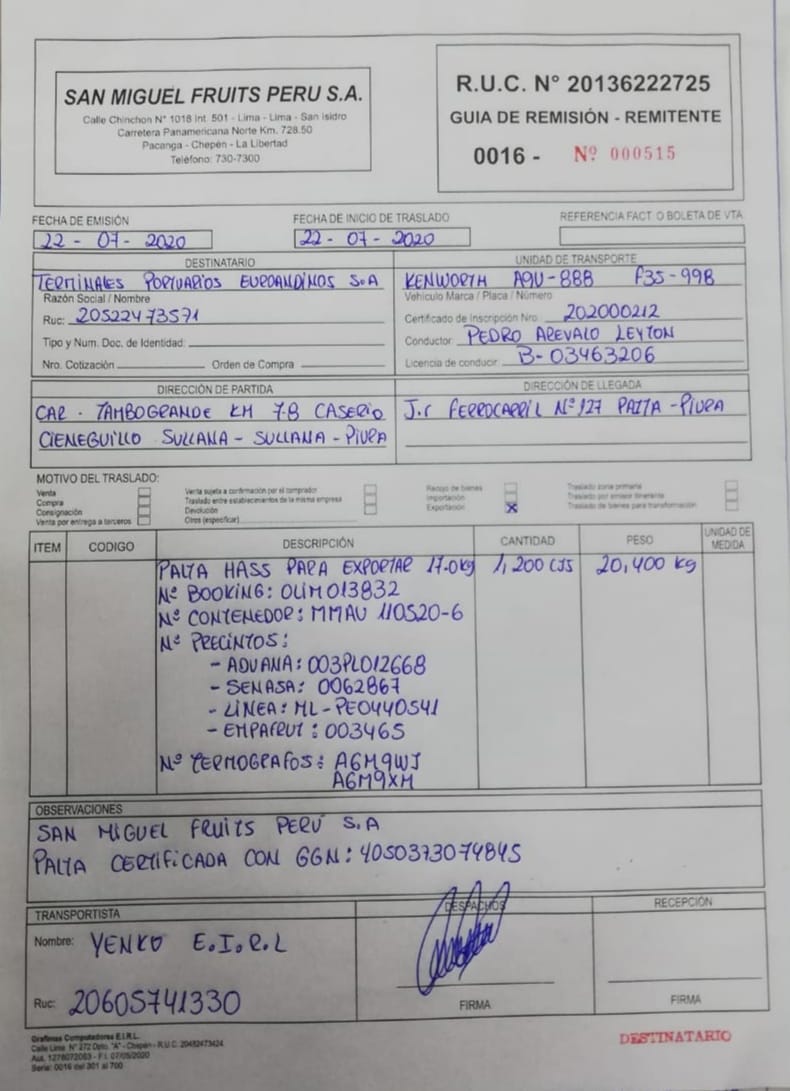 SAN MIGUEL FRUITS PERU S.A.
Calle Chinchon N° 1018 Int. 501 - Lima - Lima - San Isidro
Carretera Panamericana Norte Km. 728.50
Pacanga - Chepén - La Libertad
Teléfono: 730-7300
R.U.C. N° 20136222725
GUIA DE REMISIÓN - REMITENTE
0016 - Nº 000515
FECHA DE EMISIÓN
22 - 07 - 2020
FECHA DE INICIO DE TRASLADO
22 - 07 - 2020
REFERENCIA FACT. O BOLETA DE VTA
DESTINATARIO
TERMINALES PORTUARIOS EUROANDINOS S.A
Razón Social / Nombre
Ruc: 20522473571
Tipo y Num. Doc. de Identidad:
Nro. Cotización Orden de Compra
UNIDAD DE TRANSPORTE
KENWORTH A9U-888 F35-998
Vehiculo Marca / Placa / Número
Certificado de Inscripción Nro. 202000212
Conductor PEDRO AREVALO LEYTON
Licencia de conducir B-03463206
DIRECCIÓN DE PARTIDA
CAR. TAMBOGRANDE KM 7.8 CASERIO
CIENEGUILLO SULLANA - SULLANA - PIURA
DIRECCIÓN DE LLEGADA
J.r FERROCARRIL Nº 127 PAITA - PIURA
MOTIVO DEL TRASLADO:
Venta
Compra
Consignación
Venta por entrega a terceros
Venta sujeta a confirmación por el comprador
Traslado entre establecimientos de la misma empresa
Devolución
Otros (especificar)
Recojo de bienes
Importación
Exportación X
Traslado zona primaria
Traslado por emisor itinerante
Traslado de bienes para transformación
ITEM CODIGO DESCRIPCIÓN CANTIDAD PESO UNIDAD DE MEDIDA
PALTA HASS PARA EXPORTAR 17.0kg 1,200 CJS 20,400 kg
Nº BOOKING: OLIM013832
Nº CONTENEDOR: MMAU 110520-6
Nº PRECINTOS:
- ADUANA: 003PL012668
- SENASA: 0062867
- LÍNEA: ML-PE0440541
- EMPAFRUT: 003465
Nº TERMOGRAFOS: A6M9WJ
A6M9XM
OBSERVACIONES
SAN MIGUEL FRUITS PERÚ S.A
PALTA CERTIFICADA CON GGN: 4050373074845
TRANSPORTISTA
Nombre: YENKO E.I.R.L
Ruc: 20605741330
DESPACHOS
FIRMA
RECEPCIÓN
FIRMA
Grafimax Computadores E.I.R.L.
Calle Lima N° 272 Dpto. "A" - Chepén - R.U.C. 20482473424
Aut. 1278072083 - F.I. 07/05/2020
Serie: 0016 del 301 al 700
DESTINATARIO